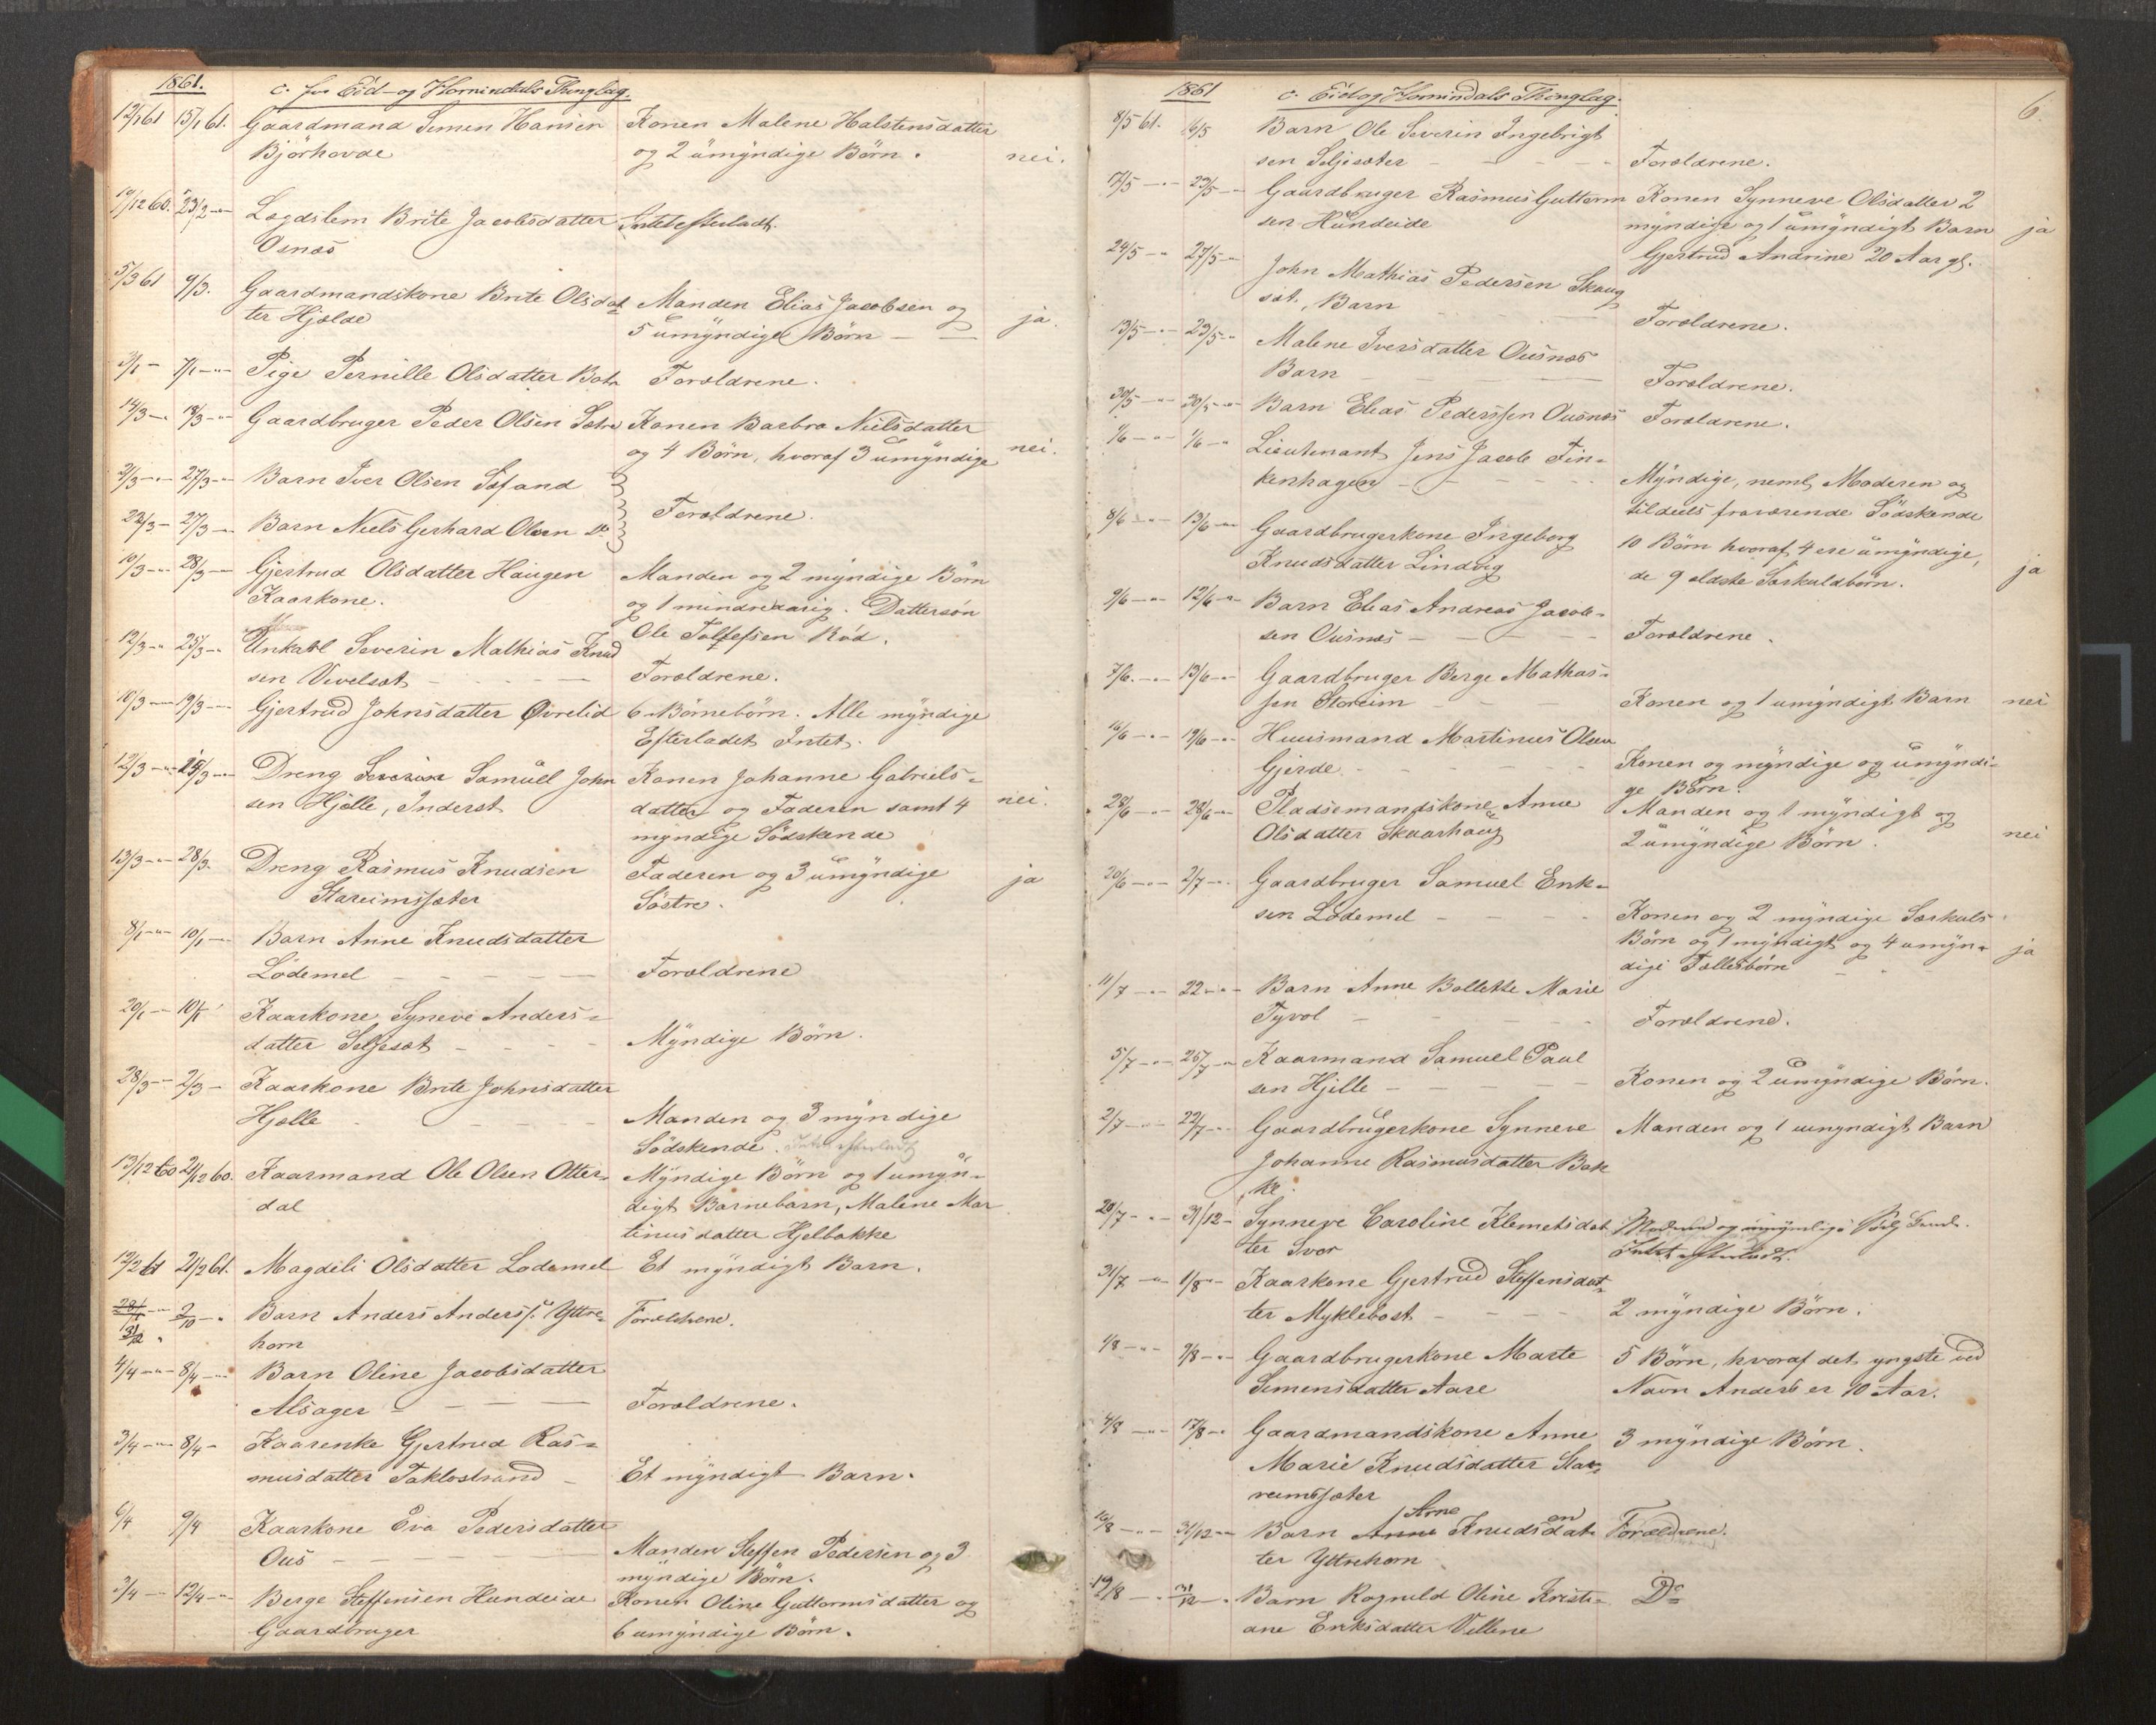 1861. c. for Eid- og Hornindals Thinglag.
12/1 61 15/1 61. Gaardmand Simen Hansen Konen Malene Halstensdatter
Bjørhovde og 2 umyndige Børn. nei.
19/12 60. 23/2 -"- Lægdslem Brite Jacobsdatter Intet efterladt.
Osnæs
5/3 61 9/3. Gaardmandskone Brite Olsdat Manden Elias Jacobsen og
ter Hjelde 5 umyndige Børn - - ja.
3/1 - 7/1 -"- Pige Pernille Olsdatter Forældrene.
14/3 -"- 18/3 -"- Gaardbruger Peder Olsen Sætre Konen Barbro Nielsdatter
og 4 Børn, hvoraf 3 umyndige nei.
21/3 -"- 27/3 -"- Barn Iver Olsen
Forældrene.
22/3 - 27/3 - Barn Niels Gerhard Olsen Do
10/3 -"- 28/3 -"- Gjertrud Olsdatter Haugen Manden og 2 myndige Børn
Kaarkone. og 1 mindreaarig. Dattersøn
Ole Tollefsen Rød.
12/3 -"- 25/3 -"- Unkarl Severin Mathias Knud
sen Vevelsæt - - - Forældrene.
10/3 -"- 19/3 -"- Gjertrud Johnsdatter Øvrelid 6 Børnebørn. Alle myndige
Efterladet Intet.
12/3 -"- 25/3 -"- Dreng Severin Samuel John Konen Johanne Gabriels-
sen Hjelle, Inderst datter og Faderen samt 4 nei.
myndige Södskende
13/3 -"- 28/3. Dreng Rasmus Knudsen Faderen og 3 umyndige ja
Stareimssæter Söstre.
8/1 -"- 10/1 -"- Barn Anne Knudsdatter
Lödemel - - - - Forældrene
20/1 -"- 10/1 Kaarkone Syneve Anders-
datter Seljeset - - - - Myndige Börn.
28/3 -"- 2/3 - Kaarkone Brite Johnsdatter
Hjelle - - - - Manden og 3 myndige
Södskende. Intet efterladt
13/12 60 21/12 60. Kaarmand Ole Olsen Otter- Myndige Börn og 1 umyn-
dal digt Barnebarn, Malene Mar
tinusdatter Hjelbakke
12/2 61 21/2 61. Magdeli Olsdatter Lödemel Et myndigt Barn.
28/1 -"- 2/10 -"- Barn Anders Anderss. Yttre- Forældrene.
31/12 " horn
4/4 -"- 8/4 -"- Barn Oline Jacobsdatter
Alsager - - - - Forældrene.
3/4 -"- 8/4 - Kaarenke Gjertrud Ras-
musdatter Taklostrand - Et myndigt Barn.
6/4 9/4 Kaarkone Eva Pedersdatter
Ous - - - - Manden Steffen Pedersen og 3
myndige Börn.
3/4 -"- 12/4 -"- Berge Steffensen Hundeide Konen Oline Guttormsdatter og
Gaardbruger 6 umyndige Börn.
1861 c. Eid og Hornindals Thinglag. 6.
8/5 61. 16/5 Barn Ole Severin Ingebrigt
sen Seljesæter - - - - Forældrene.
17/5 -"- 23/5 -"- Gaardbruger Rasmus Guttorm Konen Synneve Olsdatter 2
sen Hundeide myndige og 1 umyndigt Barn ja
Gjertrud Andrine 20 Aar gl.
24/5 -"- 27/5 -"- John Mathias Pedersen Skaug
sæt, Barn - - - Forældrene.
13/5 -"- 23/5 -"- Malene Iversdatter Ousnæs
Barn - - - - Forældrene.
30/5 -"- 30/5 -"- Barn Elias Pederssen Ousnæs Forældrene.
1/6 -"- 1/6 -"- Lieutenant Jens Jacob Fin-
kenhagen - - - - Myndige, neml. Moderen og
tildeels fraværende Södskende
8/6 -"- 13/6 -"- Gaardbrugerkone Ingeborg 10 Børn hvoraf 4 ere umyndige,
Knudsdatter Lindvig de 9 ældste Særkuldbörn. ja
9/6 -"- 12/6 -"- Barn Elias Andreas Jacob-
sen Ousnæs - - - Forældrene.
7/6. -"- 13/6 -"- Gaardbruger Berge Mathias-
sen Storeim - - - Konen og 1 umyndigt Barn nei
16/6 -"- 19/6 -"- Huusmand Martinus Olsen
Gjerde - - - - Konen og myndige og umyndi-
ge Börn.
28/6 -"- 28/6 -"- Pladsemandskone Anne Manden og 1 myndigt og
Olsdatter Skaarhaug 2 umyndige Börn. nei
20/6 -"- 2/7 -"- Gaardbruger Samuel Erik-
sen Lödemel - - - - Konen og 2 myndige Særkuls-
Börn og 1 myndigt og 4 umyn- ja
dige Fællesbörn
11/7 -"- 22 -"- Barn Anne Bollette Marie
Tyvol - - - - Forældrene.
5/7 -"- 25/7 -"- Kaarmand Samuel Paul
sen Hjelle - - - - Konen og 2 umyndige Börn.
2/7 -"- 22/7 -"- Gaardbrugerkone Synneve Manden og 1 umyndigt Barn
Johanne Rasmusdatter Bak
ke.
20/7 -"- 31/12 - Synneve Caroline Klemetsdat
ter Svor Intet efterladt.
31/7 -"- 1/8 -"- Kaarkone Gjertrud Steffensdat-
ter Myklebost - - - - 2 myndige Börn.
1/8 -"- 9/8 -"- Gaardbrugerkone Marte 5 Börn, hvoraf det yngste ved
Simensdatter Aare Navn Anders er 10 Aar.
4/8 -"- 17/8 -"- Gaardmandskone Anne 3 myndige Börn.
Marie Knudsdatter Sta-
reimssæter
16/8 -"- 31/12 -"- Barn Anne Arne Knudsdat en Forældrene.
ter Yttrehorn
19/8 -"- 31/12 -"- Barn Ragnild Oline Kristi- Do
ane Eriksdatter Vellene